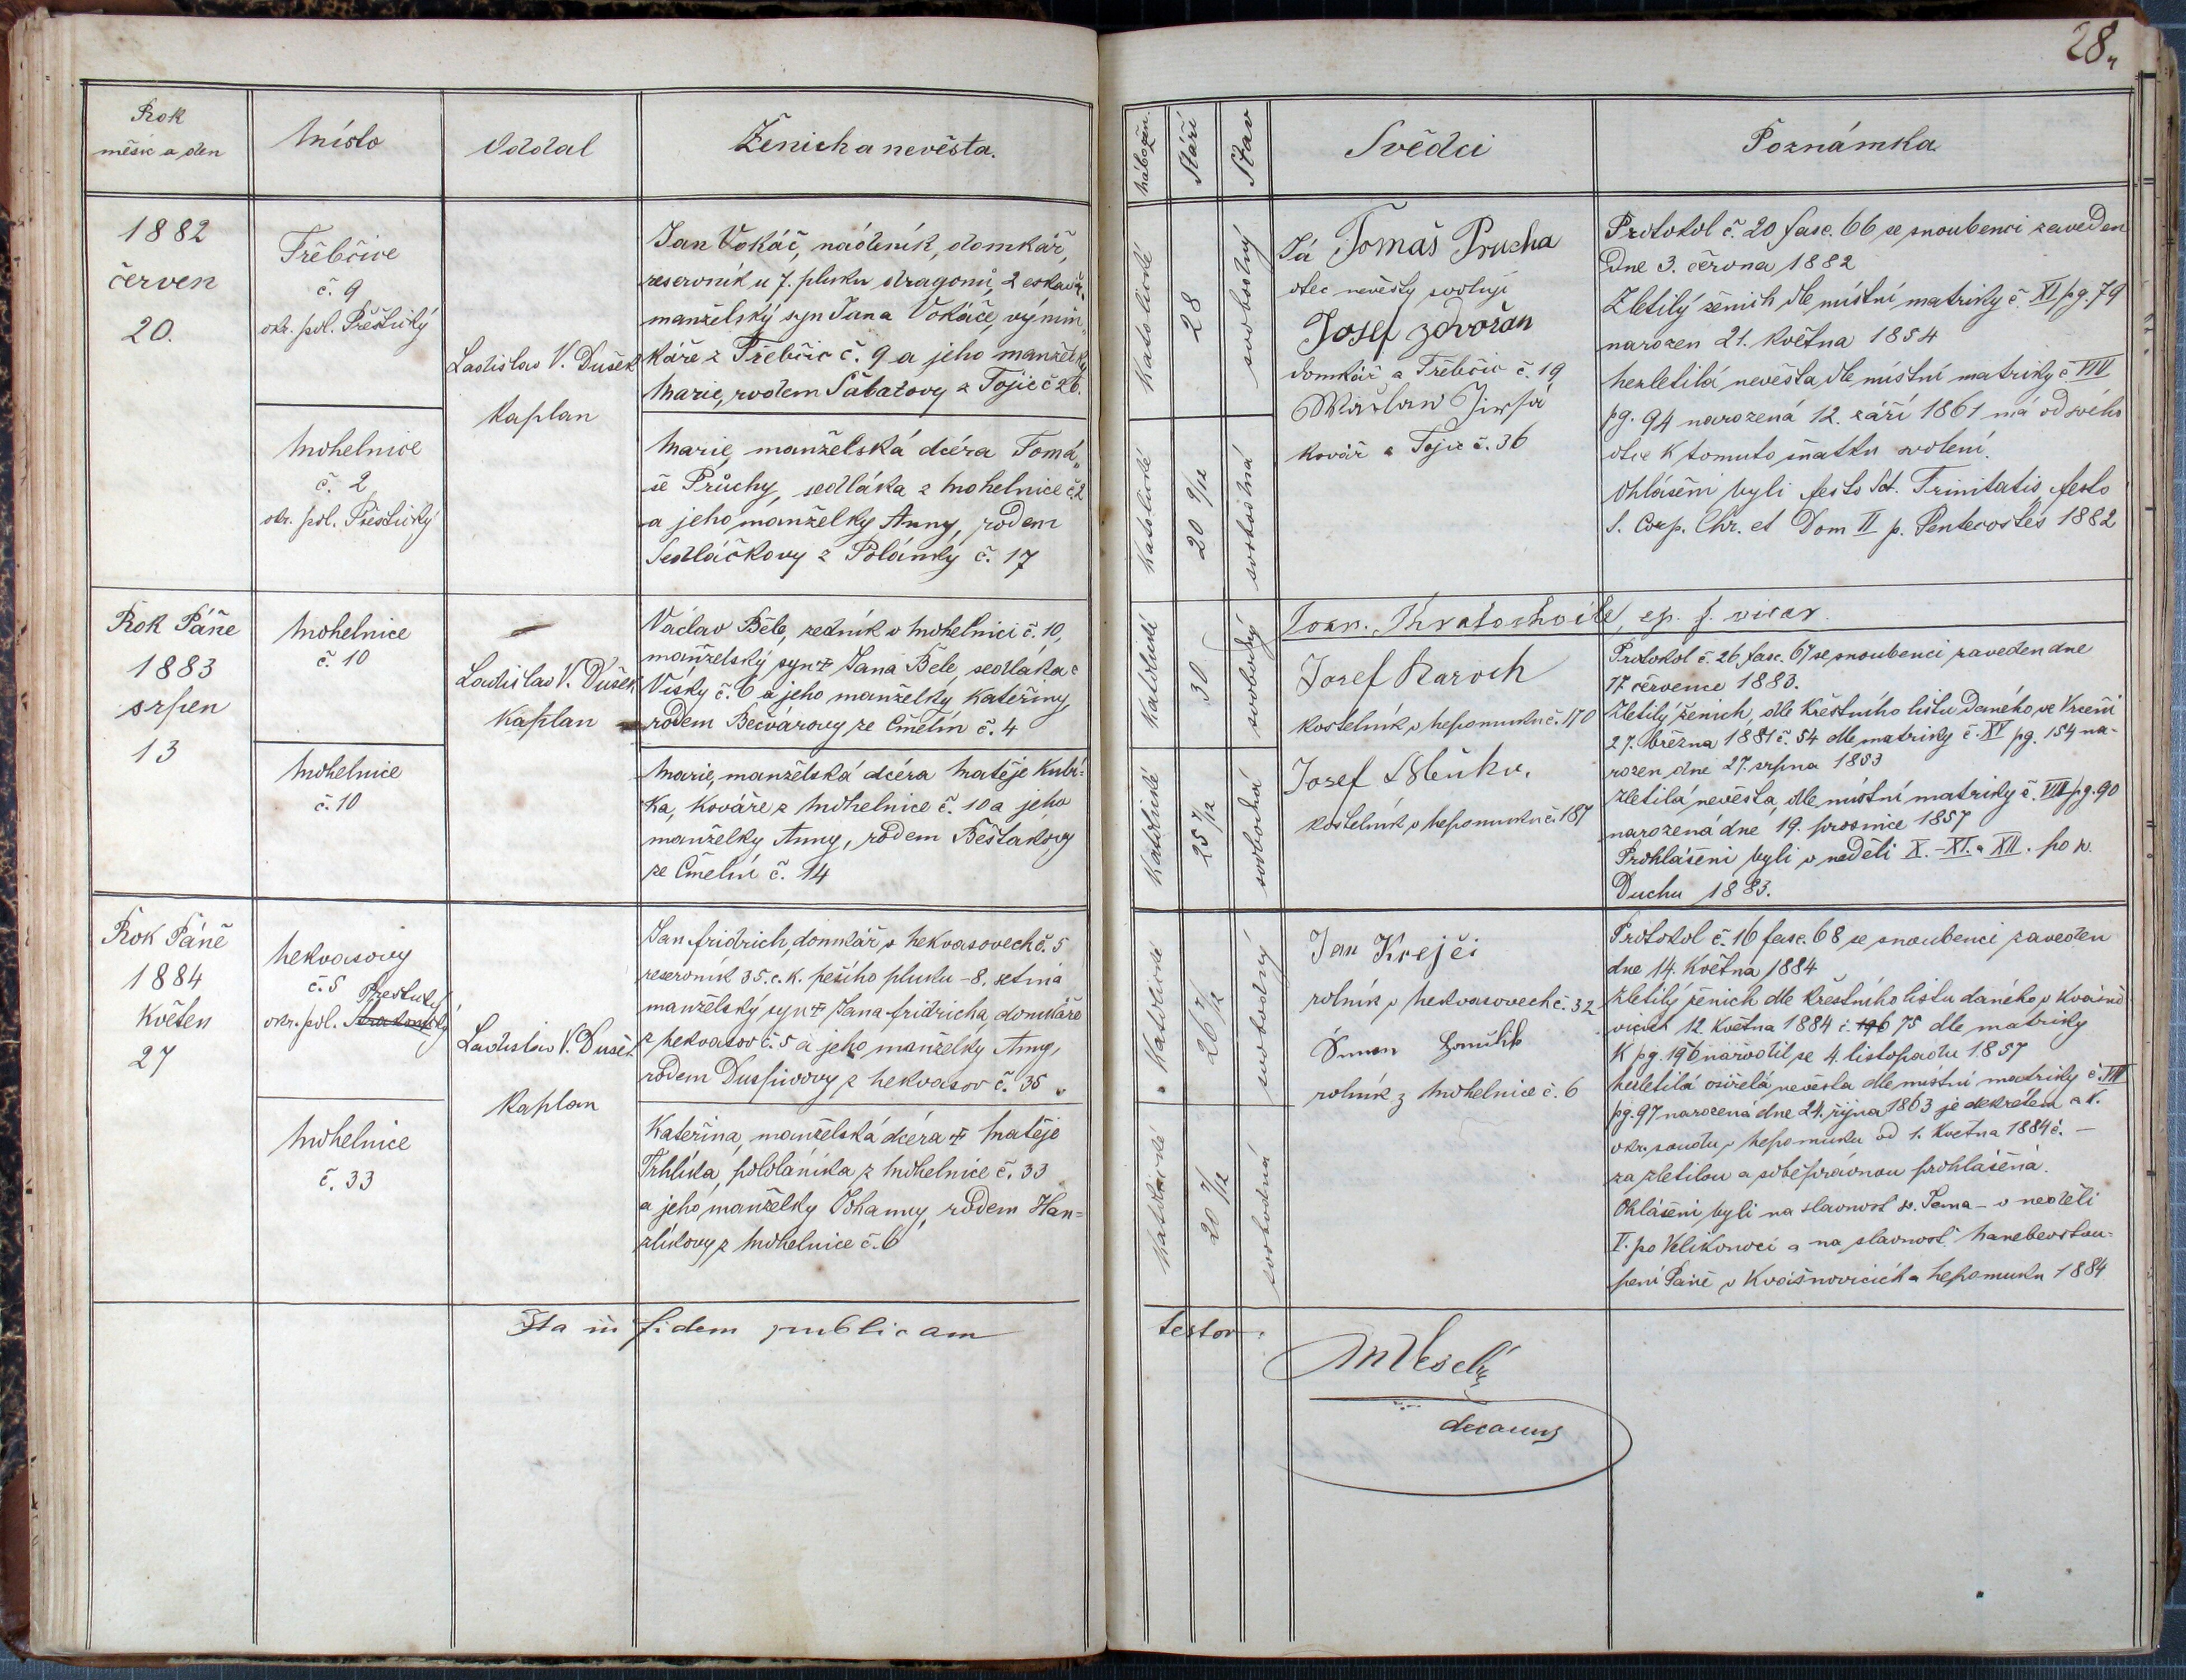 28.
Rok
měsíc a den
Místo
Oddal
Ženich a nevěsta.
nábožen.
Stáří
Stav
Svědci
Poznámka
1882
červen
20.
Třebčice
č. 9
okr. pol. Přeštický
Mohelnice
č. 2
okr. pol. Přeštický
Ladislav V. Dušek
Kaplan
Jan Vokáč, nádeník, domkář,
reservník u 7. pluku dragonů, 2 eskadr.
manželský syn Jana Vokáče, výmin„
káře z Třebčic č. 9 a jeho manželky
Marie, rodem Šabatovy z Tojic č 26.
Marie, manželská dcéra Tomá„
še Průchy, sedláka z Mohelnice č. 2
a jeho manželky Anny, rodem
Sedláčkovy z Polánky č. 17
Katolické
28
svobodný
Katolické
20 9/12
svobodná
Já Tomáš Prucha
otec nevěsty svoluji
Josef Zdvořan
domkář z Třebčic č. 19
Wáclaw Jirsa
kovář z Tojic č. 36
Protokol č. 20 fasc. 66 se snoubenci zaveden
Dne 3. června 1882
Zletilý ženich dle místní matriky č XI pg. 79
narozen 21. května 1854
Nezletilá nevěsta dle místní matriky č VIII
pg. 94 narozená 12. září 1861 má od svého
otce k tomuto sňatku svolení.
Ohlášeni byli festo Sst. Trinitatis, festo
S. Corp. Chr. et Dom II p. Pentecostes 1882
Rok Páně
1883
srpen
13
Mohelnice
č. 10
Mohelnice
č. 10
Ladislav V. Dušek
Kaplan
Václav Běle, zedník v Mohelnici č. 10,
manželský syn † Jana Běle, sedláka z
Vísky č. 6 a jeho manželky Kateřiny,
rodem Bečvárovy ze Čmelín č. 4
Marie, manželská dcéra Matěje Kubí=
ka, kováře z Mohelnice č. 10 a jeho
manželky Anny, rodem Bešťákovy
ze Čmelín č. 14
Katolické
30
svobodný
Katolické
25 7/12
svobodná
Joan. Kratochvile, ep. f. vicar.
Josef Baroch
kostelník v Nepomuku č. 170
Josef
kostelník v Nepomuku č. 187
Protokol č. 26. fasc. 67 se snoubenci zaveden dne
17. července 1883.
Zletilý ženich, dle křestního listu daného ve Vrčeni
27. března 1881 č. 54 dle matriky č. XV pg. 154 na-
rozen dne 27. srpna 1853
Zletilá nevěsta, dle místní matriky č. VIII pg. 90
narozená dne 19. prosince 1857
Prohlášeni byli v neděli X. - XI. a XII. po sv.
Duchu 1883.
Rok Páně
1884
Květen
27
Nekvasovy
č. 5
Přeštický
okr. pol.
Mohelnice
č. 33
Ladislav V. Dušek
Kaplan
Jan Fridrich, domkář v Nekvasovech č. 5
reservník 35. c. k. pěšího pluku - 8. setnina
manželský syn † Jana Fridricha, domkáře
z Nekvasov č. 5 a jeho manželky Anny,
rodem Duspivovy z Nekvasov č. 35.
Kateřina, manželská dcéra † Matěje
Trhlíka, pololáníka z Mohelnice č. 33
a jeho manželky Johanny, rodem Han=
zlíkovy z Mohelnice č. 6
Katolické
26 7/12
svobodný
Katolické
20 7/12
svobodná
Jan Krejčí
rolník v Nekvasovech č. 32
Šimon
rolník z Mohelnice č. 6
Protokol č. 16 fasc. 68 se snoubenci zaveden
dne 14. Května 1884
Zletilý ženich dle křestního listu daného v Kvášňo
vicích 12. Května 1884 č. 75 dle matriky
K pg. 196 narodil se 4. listopadu 1857
Nezletilá osiřelá nevěsta dle místní matriky č. VIII
pg. 97 narozená dne 24. října 1863 je dekretem c. k.
okr. soudu v Nepomuku od 1. Května 1884 č. —
za zletilou a soběprávnou prohlášena.
Ohlášeni byli na slavnost sv. Jana - v neděli
V. po Velikonoci a na slavnost Nanebevstou-
pení Páně v Kvášňovicích a Nepomuku 1884
Ita in fidem publicam
testor.
M Veselý
decanus